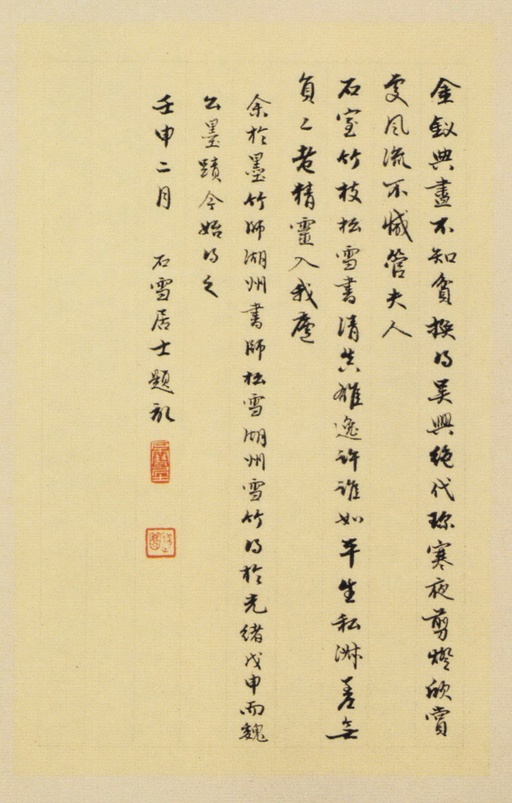 金釵典盡不知貧換得吳興絕代珍寒夜剪燈欣賞
處風流不慚管夫人
石室竹枝松雪書清真雄逸許誰如平生私淑差無
負二老精靈入我廬
余於墨竹師湖州書師松雪湖州雪竹得於光緒戊申而魏
公墨蹟今始得之
壬申二月 石雪居士題記